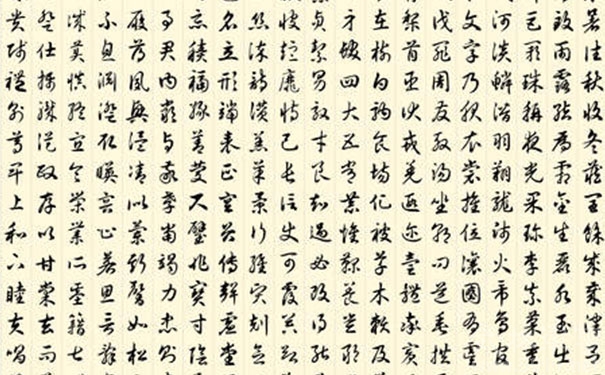 暑往秋收冬藏閏餘成歲律呂
致雨露結為霜金生麗水玉出
巨闕珠稱夜光果珍李柰菜重
河淡鱗潛羽翔龍師火帝鳥官
文字乃服衣裳推位讓國有虞
伐罪周發殷湯坐朝問道垂拱
黎首臣伏戎羌遐邇壹體率賓
在樹白駒食場化被草木賴及
身髮四大五常恭惟鞠養豈敢
貞絜男效才良知過必改得能
彼短靡恃己長信使可覆器欲
絲染詩讚羔羊景行維賢剋念
名立形端表正空谷傳聲虛堂
惡積福緣善慶尺璧非寶寸陰
事君曰嚴與敬孝當竭力忠則
履薄夙興溫凊似蘭斯馨如松
不息淵澄取暎容止若思言辭
誠美慎終宜令榮業所基籍甚
登仕攝職從政存以甘棠去而
貴賤禮別尊卑上和下睦夫唱